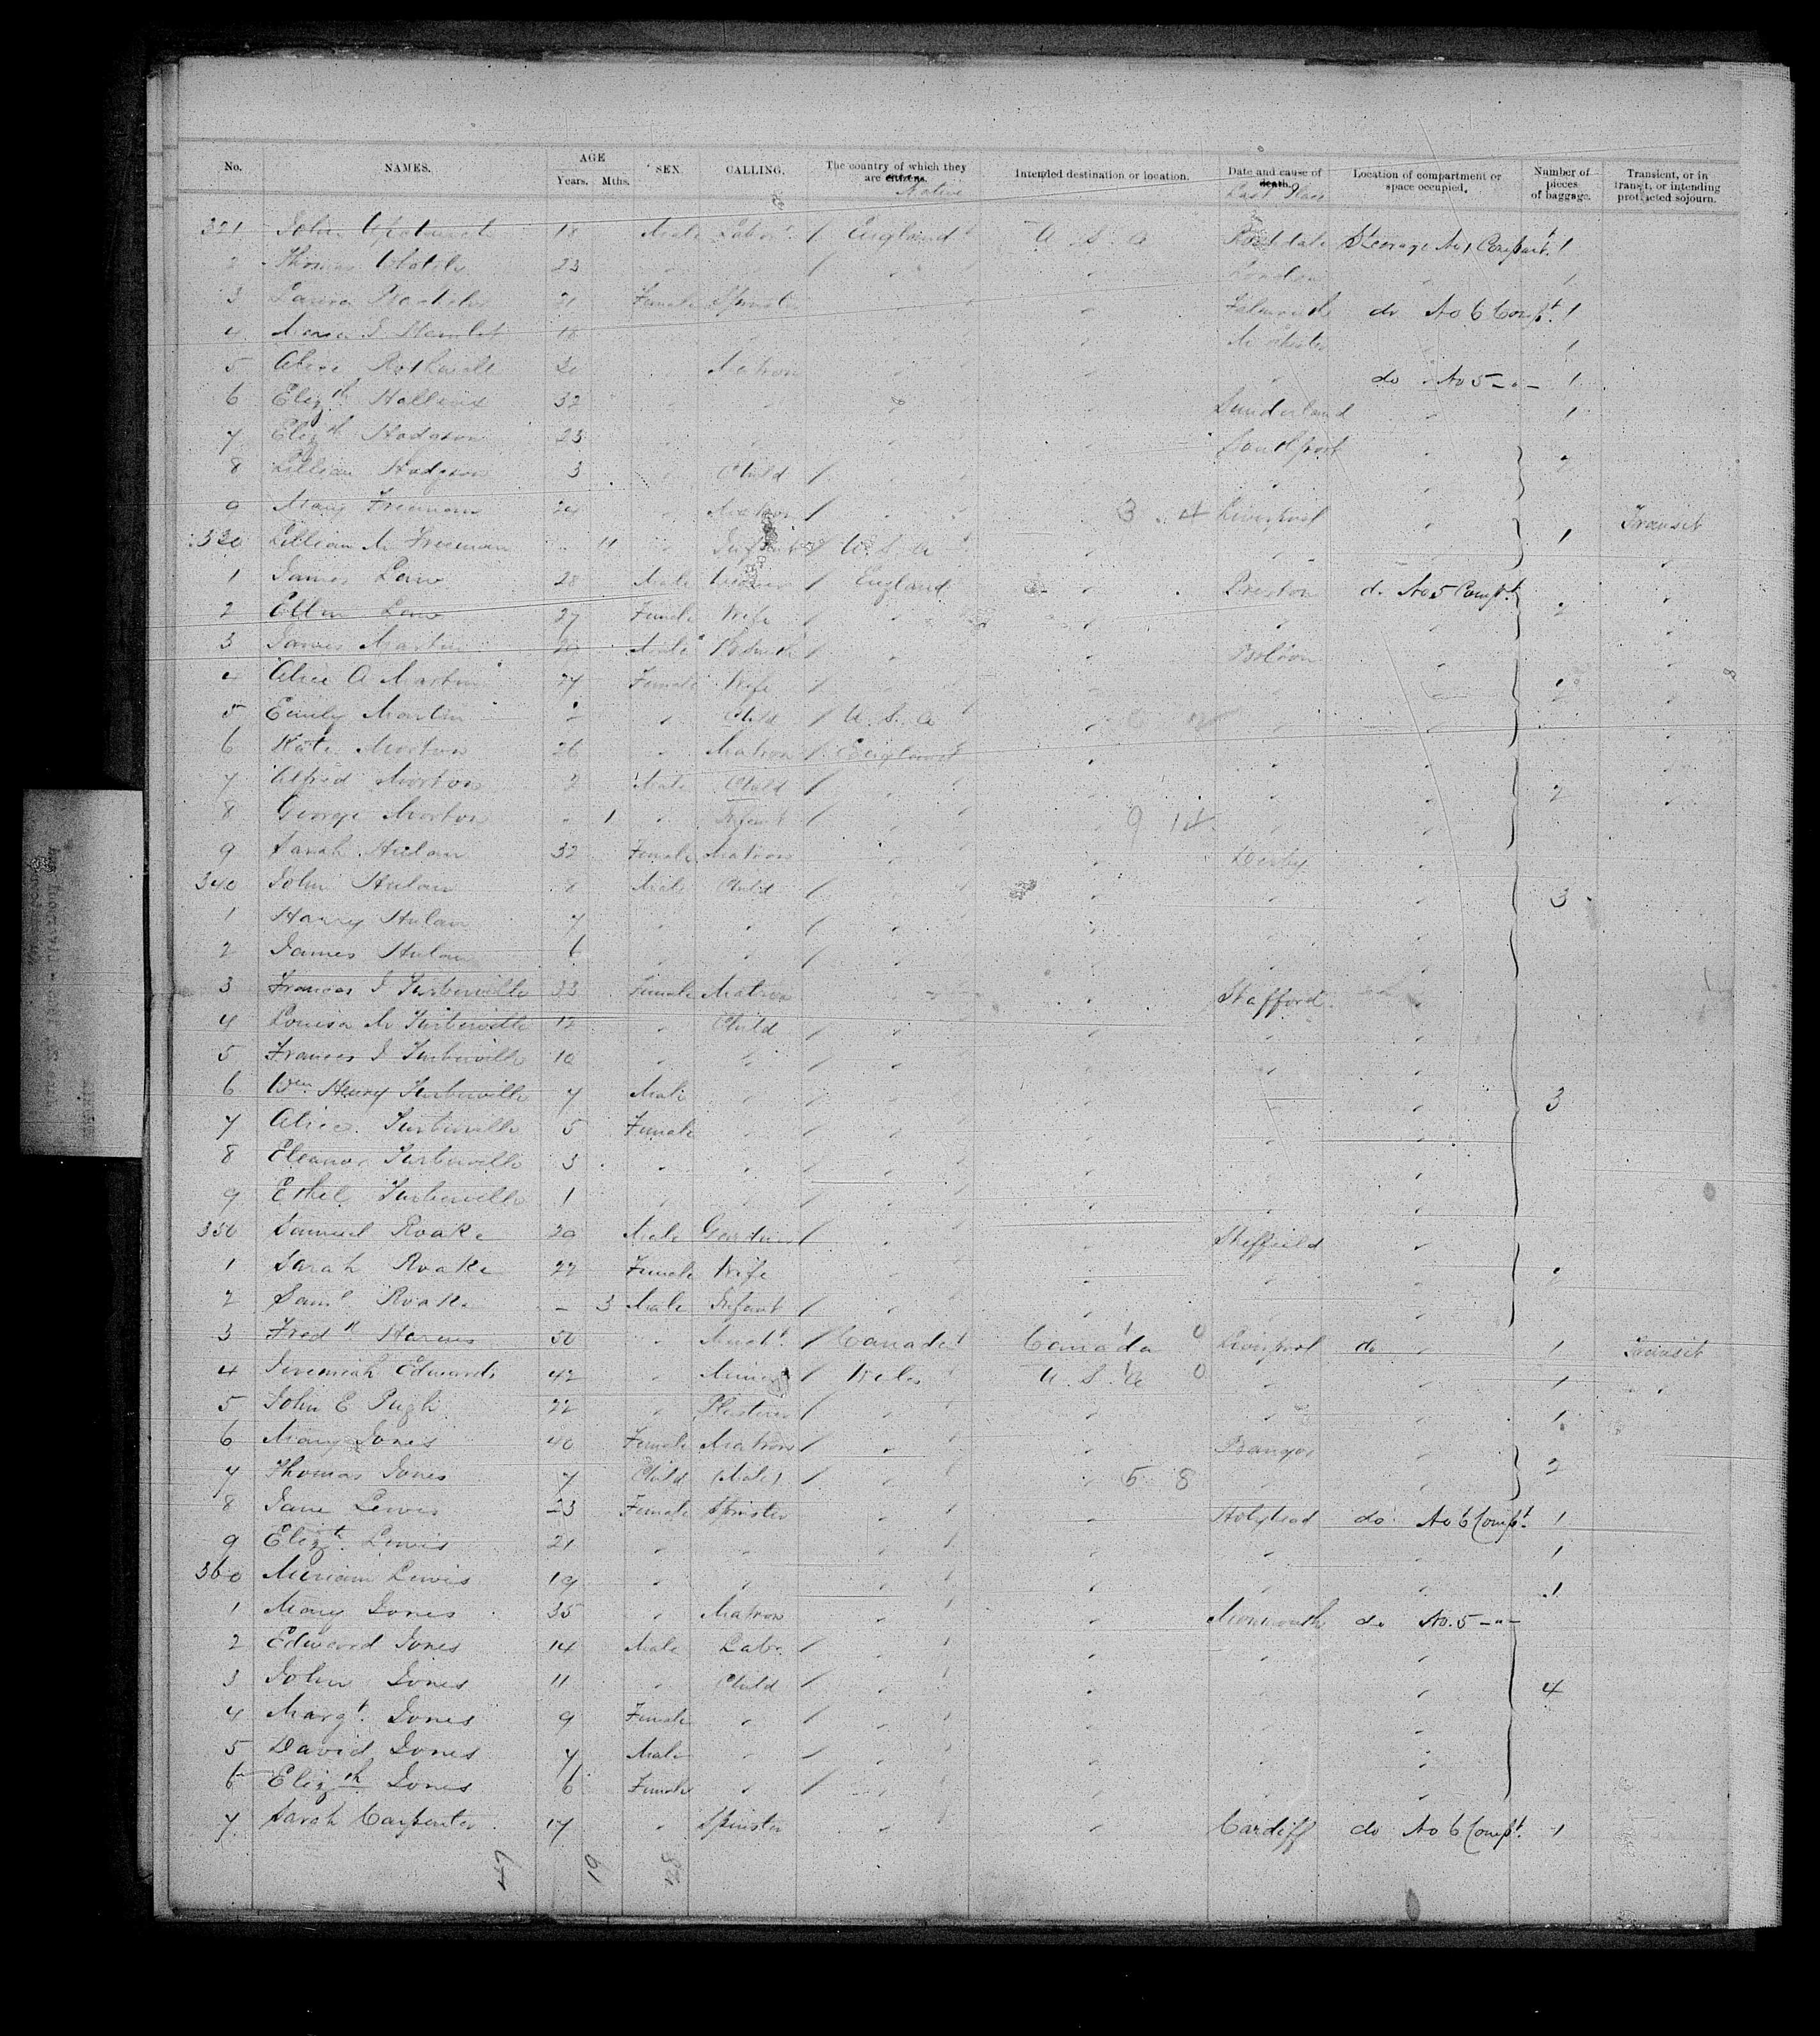 No. NAMES. AGE Years. Mths. SEX. CALLING. The country of which they are citizens. Native Intended destination or location. Date and cause of death. Last Place Location of compartment or space occupied. Number of pieces of baggage. Transient, or in transit, or intending protracted sojourn.
321 John 18 Male Labr. / England U. S. A Steerage No 1 Compart. 1
2 Thomas 23 " " / " " London " 1
3 21 Female Spinster " " Falmouth do No 6 Compt. 1
4 18 " " " " 1
5 Alice Rothwell Matron " " " do No 5 - " - 1
6 Elizth 32 " " " " Sunderland " 1
7 Elizth Hodgson 23 " " " " Southport " 2
8 Lillian Hodgson 3 " Child / " " " "
9 Mary Freeman 24 " Matron / " 3 4 Liverpool " Transit
330 Lillian M. Freeman " 11 " Infant / U. S. A " " " 1 "
1 James Law 28 Male / England " Preston do No 5 Compt "
2 Ellen Law 27 Female Wife / " " " " 2 "
3 James Martin Male / " " Bolton " "
4 Alice A Martin 27 Female Wife / " " " " 2 "
5 Emily Martin 2 " Child / U. S. A " " " "
6 Kate Morton 26 " Matron / England " " " "
7 Alfred Morton 2 Male Child / " " " " 2 "
8 George Morton " 1 " Infant / " 9 14 " "
9 Sarah Hulan 32 Female Matron " " Derby "
340 John Hulan 8 Male Child / " " " " 3
1 Harry Hulan 7 " " / " " " "
2 James Hulan 6 " " / " " " "
3 Frances J Turberville 33 Female Matron " " Stafford "
4 Louisa M. Turberville 12 " Child / " " " "
5 Frances J Turberville 10 " " / " " " "
6 Wm. Henry Turberville 7 Male " / " " " " 3
7 Alice Turberville 5 Female " / " " " "
8 Eleanor Turberville 3 " " / " " " "
9 Ethel Turberville 1 " " / " " " "
350 Samuel Roake 20 Male Gardener / " " Sheffield "
1 Sarah Roake 22 Female Wife " " " " 2
2 Saml Roake - 3 Male Infant / " " " "
3 Fredk 50 " Mercht / Canada Canada 0 Liverpool do " 1 Transit
4 Jeremiah Edwards 42 " Miner / Wales U. S. A 0 " " 1 "
5 John E Pugh 22 " Plasterer / " " " " 1
6 Mary Jones 40 Female Matron / " " Bangor " 2
7 Thomas Jones 7 Child (Male) / " " 5 8 " "
8 Jane Lewis 23 Female Spinster " " Holyhead do No 6 Compt. 1
9 Elizth. Lewis 21 " " " " " " 1
360 Miriam Lewis 19 " " " " " " 1
1 Mary Jones 35 " Matron " " Monmouth do No. 5 - " -
2 Edward Jones 14 Male Labr. / " " " "
3 John Jones 11 " Child / " " " " 4
4 Margt. Jones 9 Female " / " " " "
5 David Jones 7 Male " / " " " "
6 Elizth Jones 6 Female " / " " " "
7 Sarah Carpenter 17 " Spinster " " Cardiff do No 6 Compt. 1
47 19 28